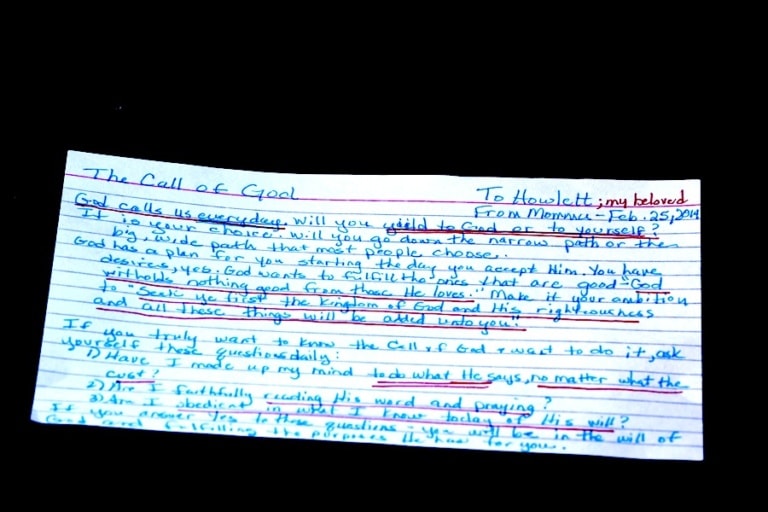 The Call of God
To Howlett; my beloved
From Mommu - Feb. 25, 2014
God calls us everyday. Will you yield to God or to yourself?
It is your choice. Will you go down the narrow path or the
big, wide path that most people choose..
God has a plan for you starting the day you accept Him. You have
desires, yes. God wants to fulfill the ones that are good - "God
witholds nothing good from those He loves." Make it your ambition
to "Seek ye first the Kingdom of God and His righteousness
and all these things will be added unto you".
If you truly want to know the Call of God & want to do it, ask
yourself these questions daily:
1) Have I made up my mind to do what He says, no matter what the
cost?
2) Am I faithfully reading His word and praying?
3) Am I obedient in what I know today of His will?
If you answer Yes to these questions - you will be in the will of
God and fulfilling the purposes He has for you.